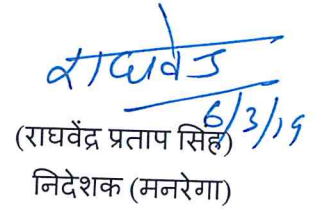 राघवेंद्र
6/3/19
(राघवेंद्र प्रताप सिंह)
निदेशक (मनरेगा)